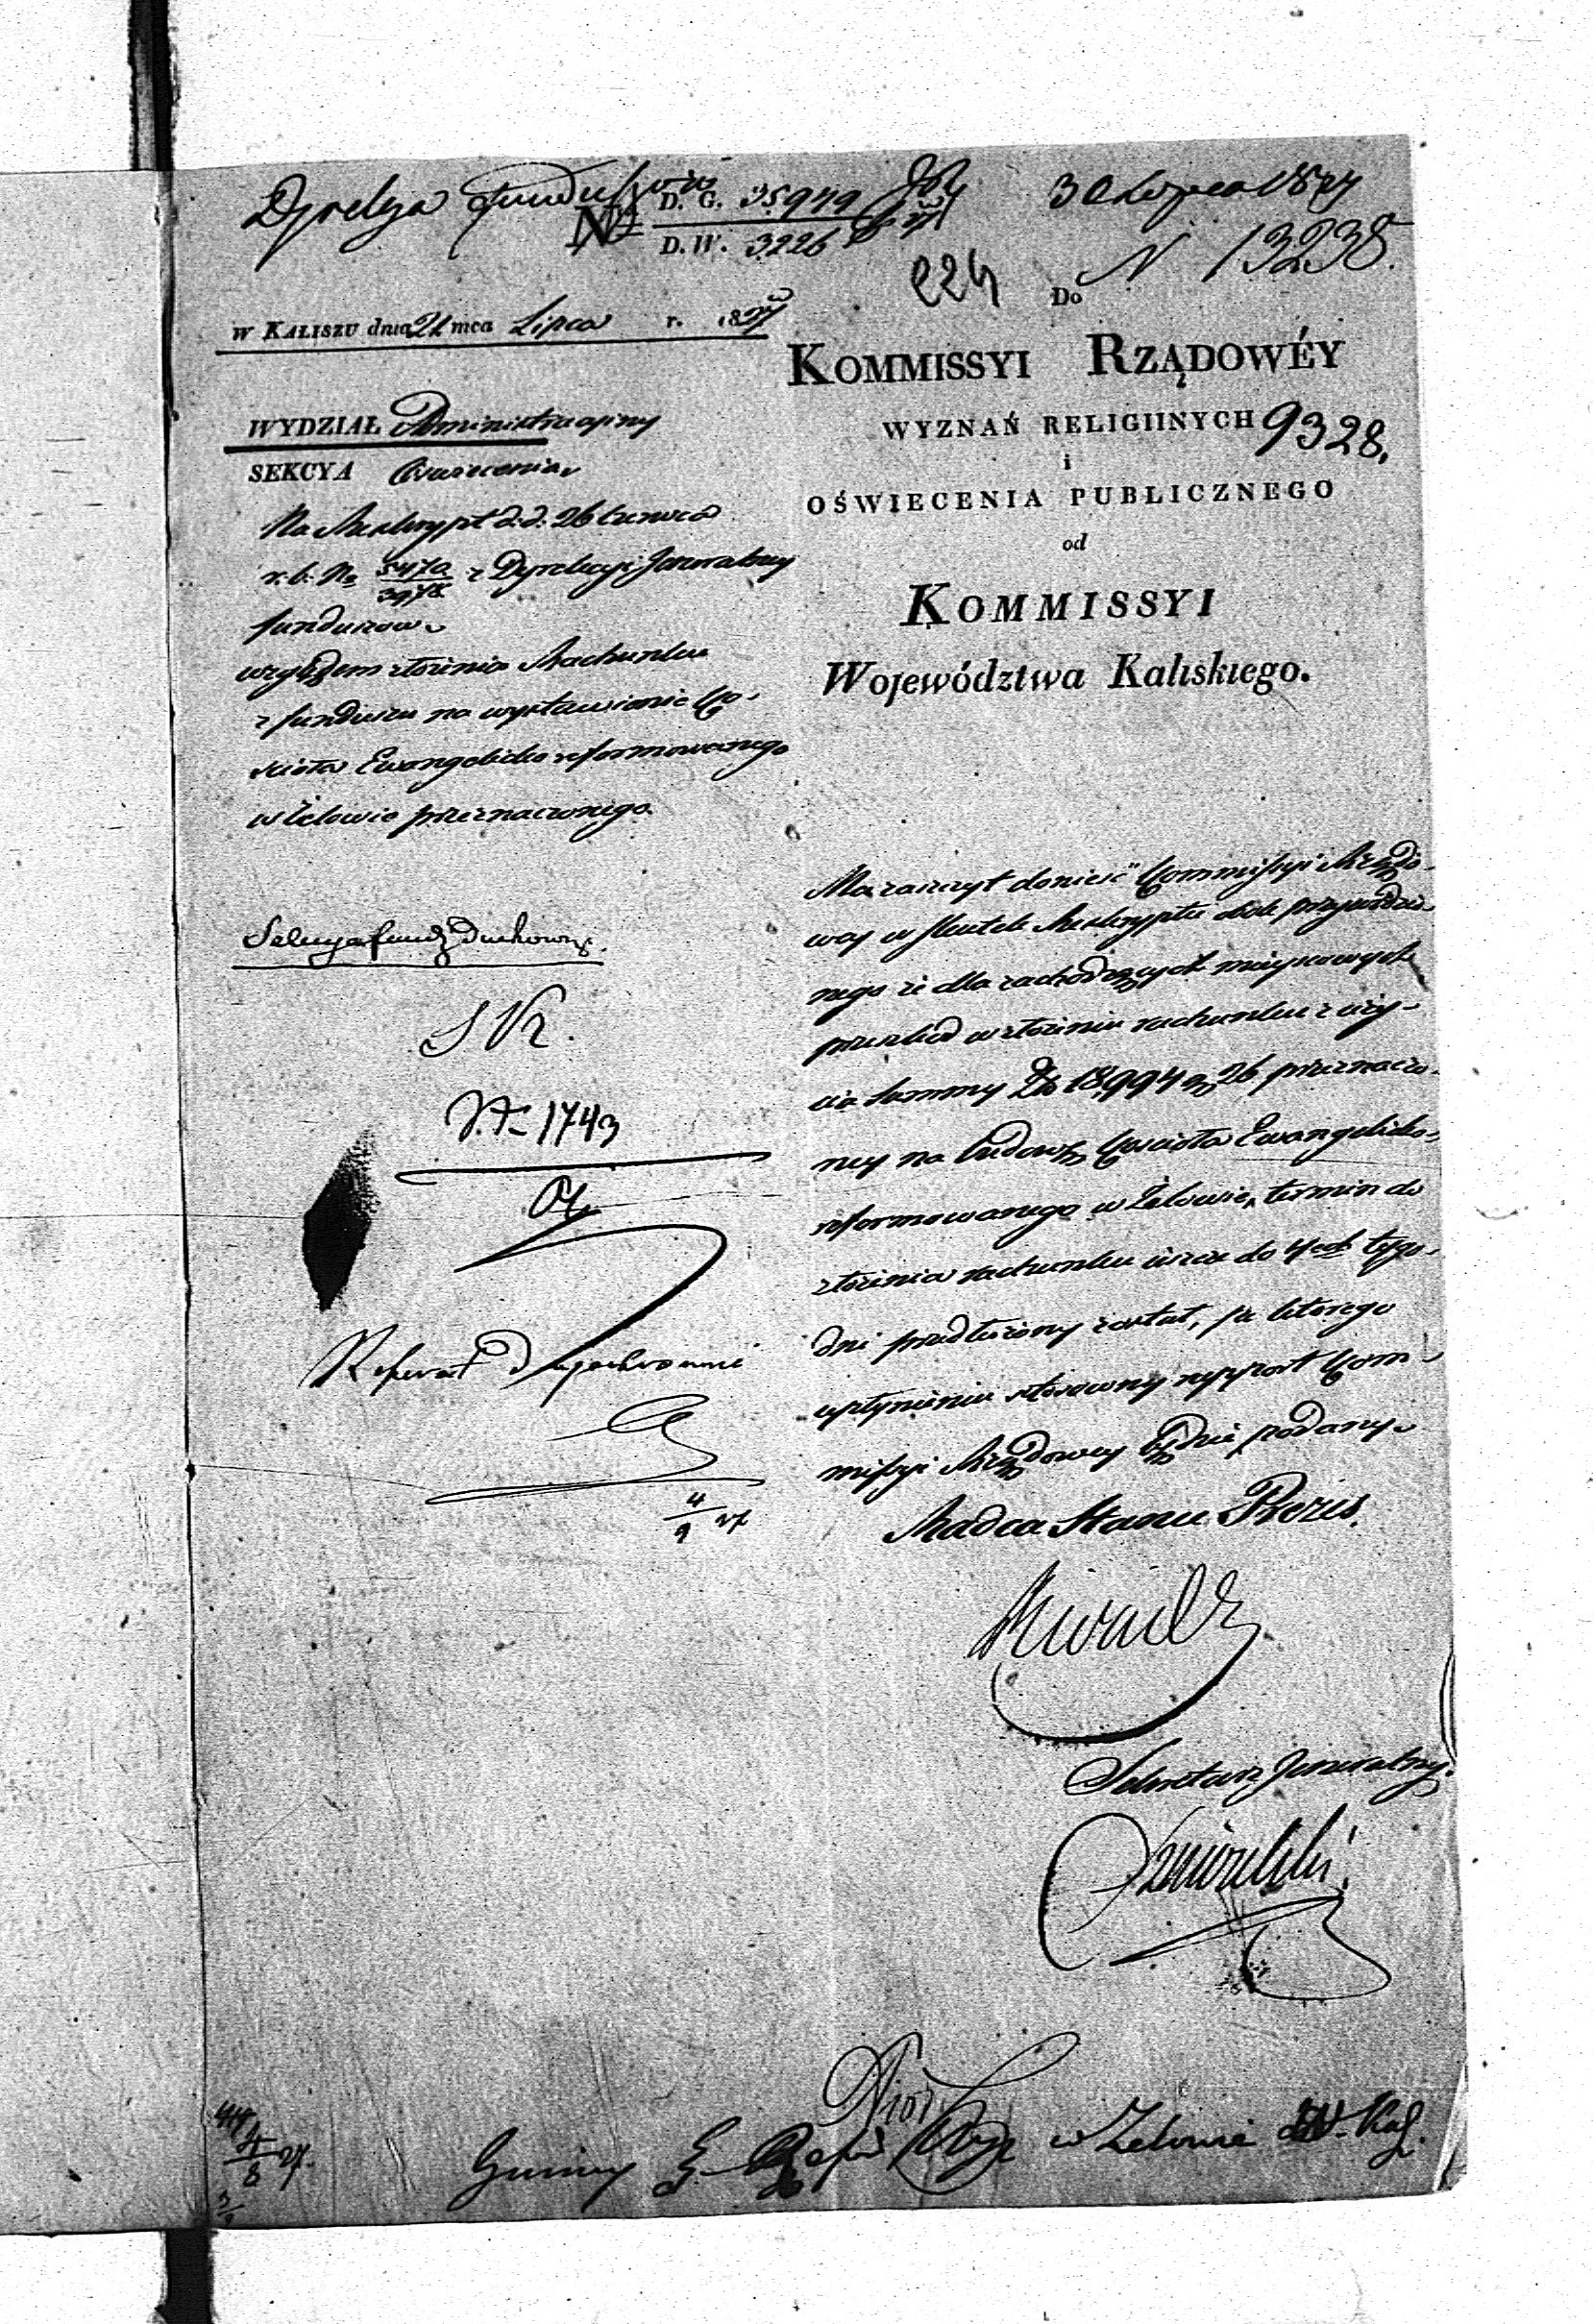 Dyrekcya Funduszów
No D. G. 35949
D. W. 3226
30 Lipca 1827
N 13238.
224
w Kaliszu dnia 21 mca Lipca r. 1827
Do
Kommissyi Rządowéy
wyznań religiinych 9328.
i
oświecenia publicznego
od
Kommissyi
Województwa Kaliskiego.
WYDZIAŁ Administracyiny
SEKCYA Oswiecenia
Na Reskrypt d. d. 26 Czerwca
r. b. No 5470/3978 z Dyrekcyi Jeneralney
funduszow
względem złożenia Rachunku
z funduszu na wystawienie Ko-
scioła Ewangelicko reformowanego
w Zelowie przeznaczonego.
Sekcya fund. Duchown.
V.A. 1743
Referat
4/9 27
Ma zaszczyt donieść Kommissyi Rządo-
wey w skutek Reskryptu obok przywiedzio-
nego że dla zachodzących mieyscowych
przeszkod w złożeniu rachunku z uży-
cia Summy Zło 18,994 gr 26 przeznaczo-
ney na budowę Kościoła Ewangelicko-
reformowanego w Zelowie, termin do
złożenia rachunku ieszcze do 4ech tygo-
dni przedłużony został, po którego
upłynieniu stosowny rapport Kom-
missyi Rządowey będzie podany.
Radca Stanu Prezes.
Sekretarz Jeneralny.
4/8 27.
Gminy E. Refor. w Zelowie W. Kal.